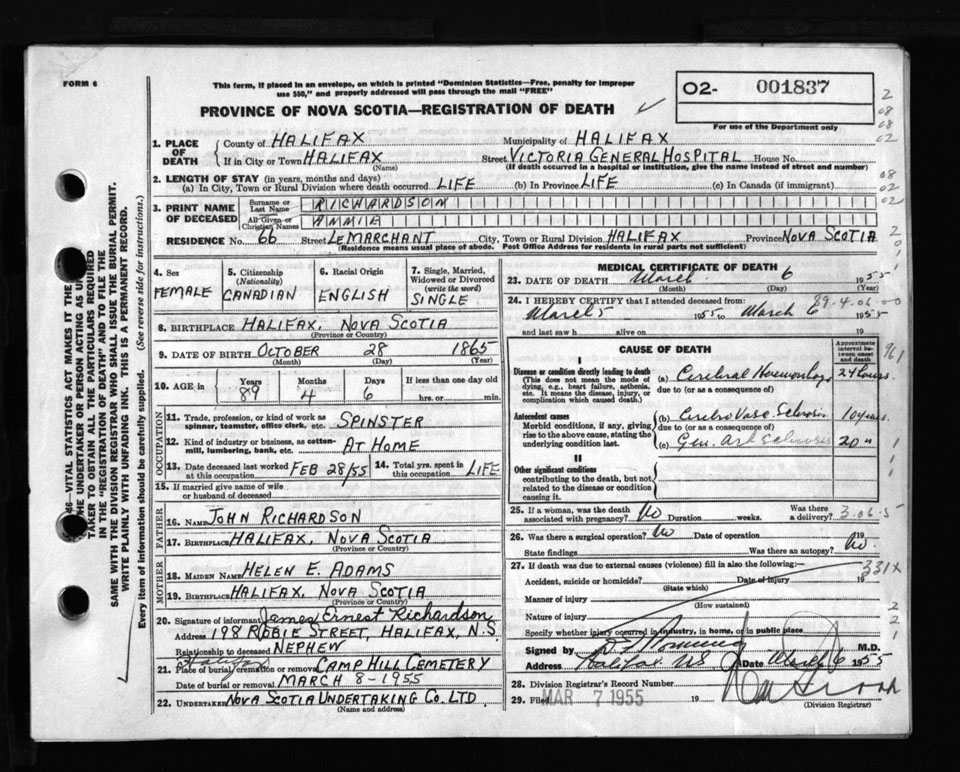 FORM 6
This form, if placed in an envelope, on which is printed "Dominion Statistics—Free, penalty for improper
use $50," and properly addressed will pass through the mail "FREE"
PROVINCE OF NOVA SCOTIA—REGISTRATION OF DEATH
02- 001837
For use of the Department only
1. PLACE OF DEATH
County of HALIFAX Municipality of HALIFAX
If in City or Town HALIFAX Street VICTORIA GENERAL HOSPITAL House No.
(Name) (If death occurred in a hospital or institution, give the name instead of street and number)
2. LENGTH OF STAY (in years, months and days)
(a) In City, Town or Rural Division where death occurred LIFE (b) In Province LIFE (c) In Canada (if immigrant)
3. PRINT NAME OF DECEASED
Surname or Last Name RICHARDSON
All Given or Christian Names ANNIE
RESIDENCE No. 66 Street LEMARCHANT City, Town or Rural Division HALIFAX Province NOVA SCOTIA
(Residence means usual place of abode. Post Office Address for residents in rural parts not sufficient)
4. Sex FEMALE
5. Citizenship (Nationality) CANADIAN
6. Racial Origin ENGLISH
7. Single, Married, Widowed or Divorced (write the word) SINGLE
8. BIRTHPLACE HALIFAX, NOVA SCOTIA
(Province or Country)
9. DATE OF BIRTH OCTOBER 28 1865
(Month) (Day) (Year)
10. AGE in Years 89 Months 4 Days 6 If less than one day old
hrs. or min.
OCCUPATION
11. Trade, profession, or kind of work as spinner, teamster, office clerk, etc. SPINSTER
12. Kind of industry or business, as cotton-mill, lumbering, bank, etc. AT HOME
13. Date deceased last worked at this occupation FEB 28/55 14. Total yrs. spent in this occupation LIFE
15. If married give name of wife or husband of deceased
FATHER
16. NAME JOHN RICHARDSON
17. BIRTHPLACE HALIFAX, NOVA SCOTIA
(Province or Country)
MOTHER
18. MAIDEN NAME HELEN E. ADAMS
19. BIRTHPLACE HALIFAX, NOVA SCOTIA
(Province or Country)
20. Signature of informant James Ernest Richardson
Address 198 ROBIE STREET, HALIFAX, N.S.
Relationship to deceased NEPHEW
Halifax
21. Place of burial, cremation or removal CAMP HILL CEMETERY
Date of burial or removal MARCH 8-1955
22. UNDERTAKER NOVA SCOTIA UNDERTAKING CO. LTD
(Name and address)
MEDICAL CERTIFICATE OF DEATH
23. DATE OF DEATH March 6 1955
(Month) (Day) (Year)
89-4-06-00
24. I HEREBY CERTIFY that I attended deceased from
March 5 1955 to March 6 1955
and last saw h alive on 19
CAUSE OF DEATH
Approximate interval between onset and death
I
Disease or condition directly leading to death (a) Cerebral Hemorrhage 24 hours
(This does not mean the mode of dying, e.g., heart failure, asthenia, etc. It means the disease, injury, or complication which caused death.)
due to (or as a consequence of)
Antecedent causes (b) Cerebro Vasc. Sclerosis 10 years
Morbid conditions, if any, giving rise to the above cause, stating the underlying condition last.
due to (or as a consequence of)
(c) Gen. Art. Sclerosis 20 "
II
Other significant conditions
contributing to the death, but not related to the disease or condition causing it.
25. If a woman, was the death associated with pregnancy? No Duration weeks. Was there a delivery?
3.06.5
26. Was there a surgical operation? No Date of operation 19
State findings Was there an autopsy? No
27. If death was due to external causes (violence) fill in also the following:—
331x
Accident, suicide or homicide? Date of injury 19
(State which)
Manner of injury
(How sustained)
Nature of injury
Specify whether injury occurred in industry, in home, or in public place
Signed by M.D.
Address Halifax NS Date March 6 1955
28. Division Registrar's Record Number
29. Filed MAR 7 1955 19
(Division Registrar)
SAME WITH THE DIVISION REGISTRAR WHO SHALL ISSUE THE BURIAL PERMIT.
WRITE PLAINLY WITH UNFADING INK. THIS IS A PERMANENT RECORD.
Every item of information should be carefully supplied. (See reverse side for instructions.)